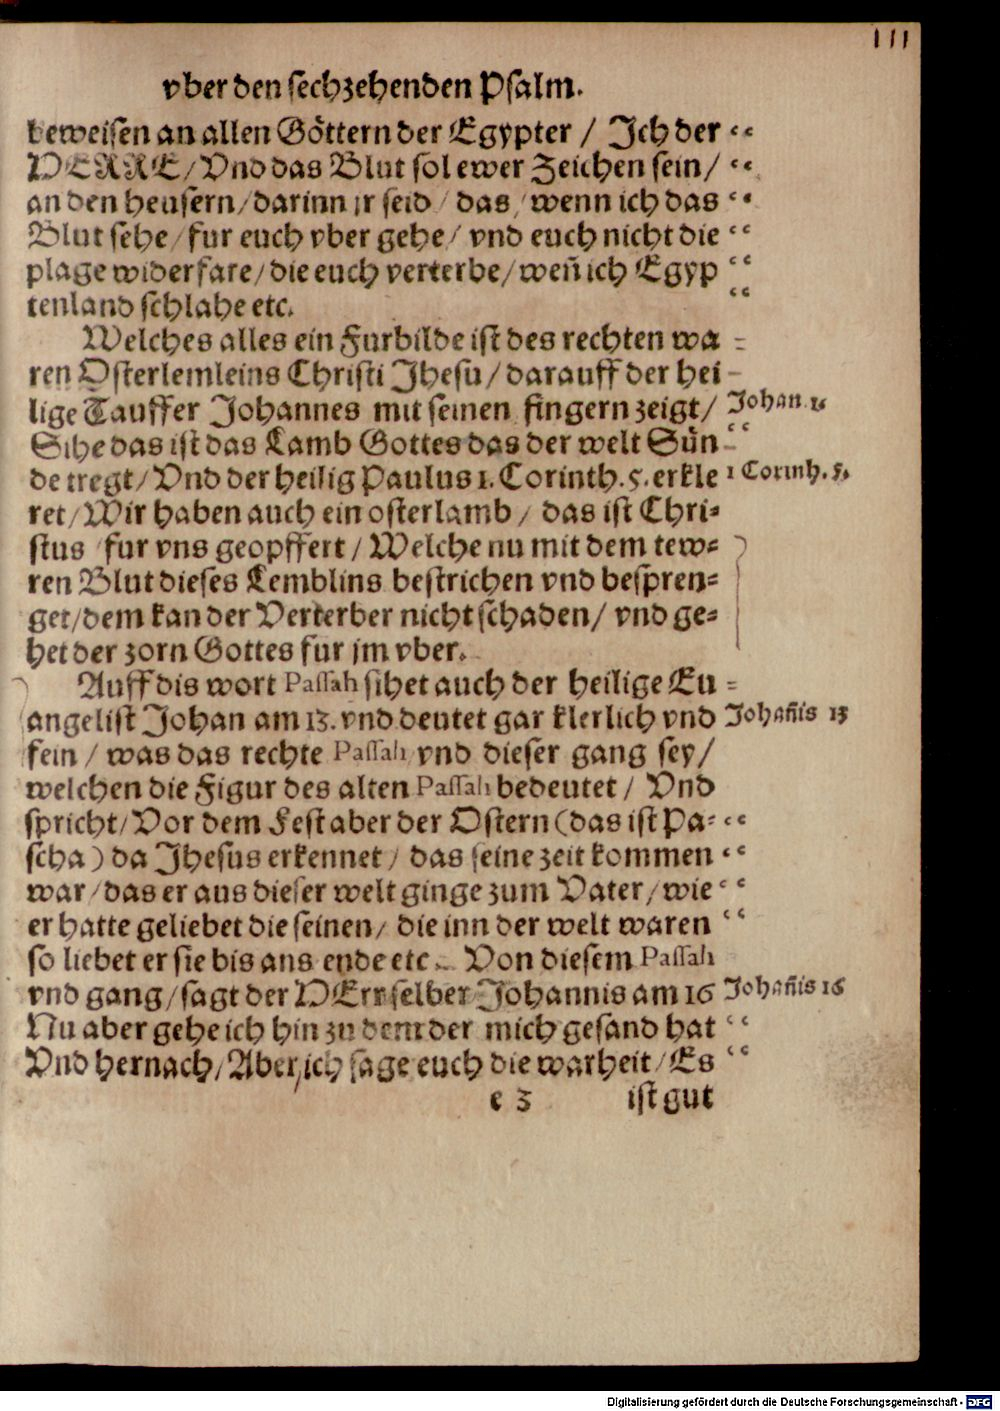 111
vber den sechzehenden Psalm.
beweisen an allen Göttern der Egypter / Jch der “
HERRE / Vnd das Blut sol ewer Zeichen sein / “
an den heusern / darinn jr seid / das / wenn ich das “
Blut sehe / fur euch vber gehe / vnd euch nicht die “
plage widerfare / die euch verterbe / weñ ich Egyp “
tenland schlahe etc. “
Welches alles ein Furbilde ist des rechten wa =
ren Osterlemleins Christi Jhesu / darauff der hei -
lige Tauffer Johannes mit seinen fingern zeigt / Johan. 1.
Sihe das ist das Lamb Gottes das der welt Sün “
de tregt / Vnd der heilig Paulus 1. Corinth. 5. erkle 1 Corinth. 5.
ret / Wir haben auch ein osterlamb / das ist Chri=
stus fur vns geopffert / Welche nu mit dem tew=
ren Blut dieses Lemblins bestrichen vnd bespren=
get / dem kan der Verterber nicht schaden / vnd ge=
het der zorn Gottes fur jm vber.
Auff dis wort Passah sihet auch der heilige Eu =
angelist Johan am 13. vnd deutet gar klerlich vnd Johañis 13
fein / was das rechte Passah vnd dieser gang sey /
welchen die Figur des alten Passah bedeutet / Vnd
spricht / Vor dem Fest aber der Ostern (das ist Pa= “
scha) da Jhesus erkennet / das seine zeit kommen “
war / das er aus dieser welt ginge zum Vater / wie “
er hatte geliebet die seinen / die inn der welt waren “
so liebet er sie bis ans ende etc. Von diesem Passah
vnd gang / sagt der HErr selber Johannis am 16 Johañis 16
Nu aber gehe ich hin zu dem der mich gesand hat “
Vnd hernach / Aber ich sage euch die warheit / Es “
e 3 ist gut
Digitalisierung gefördert durch die Deutsche Forschungsgemeinschaft - DFG